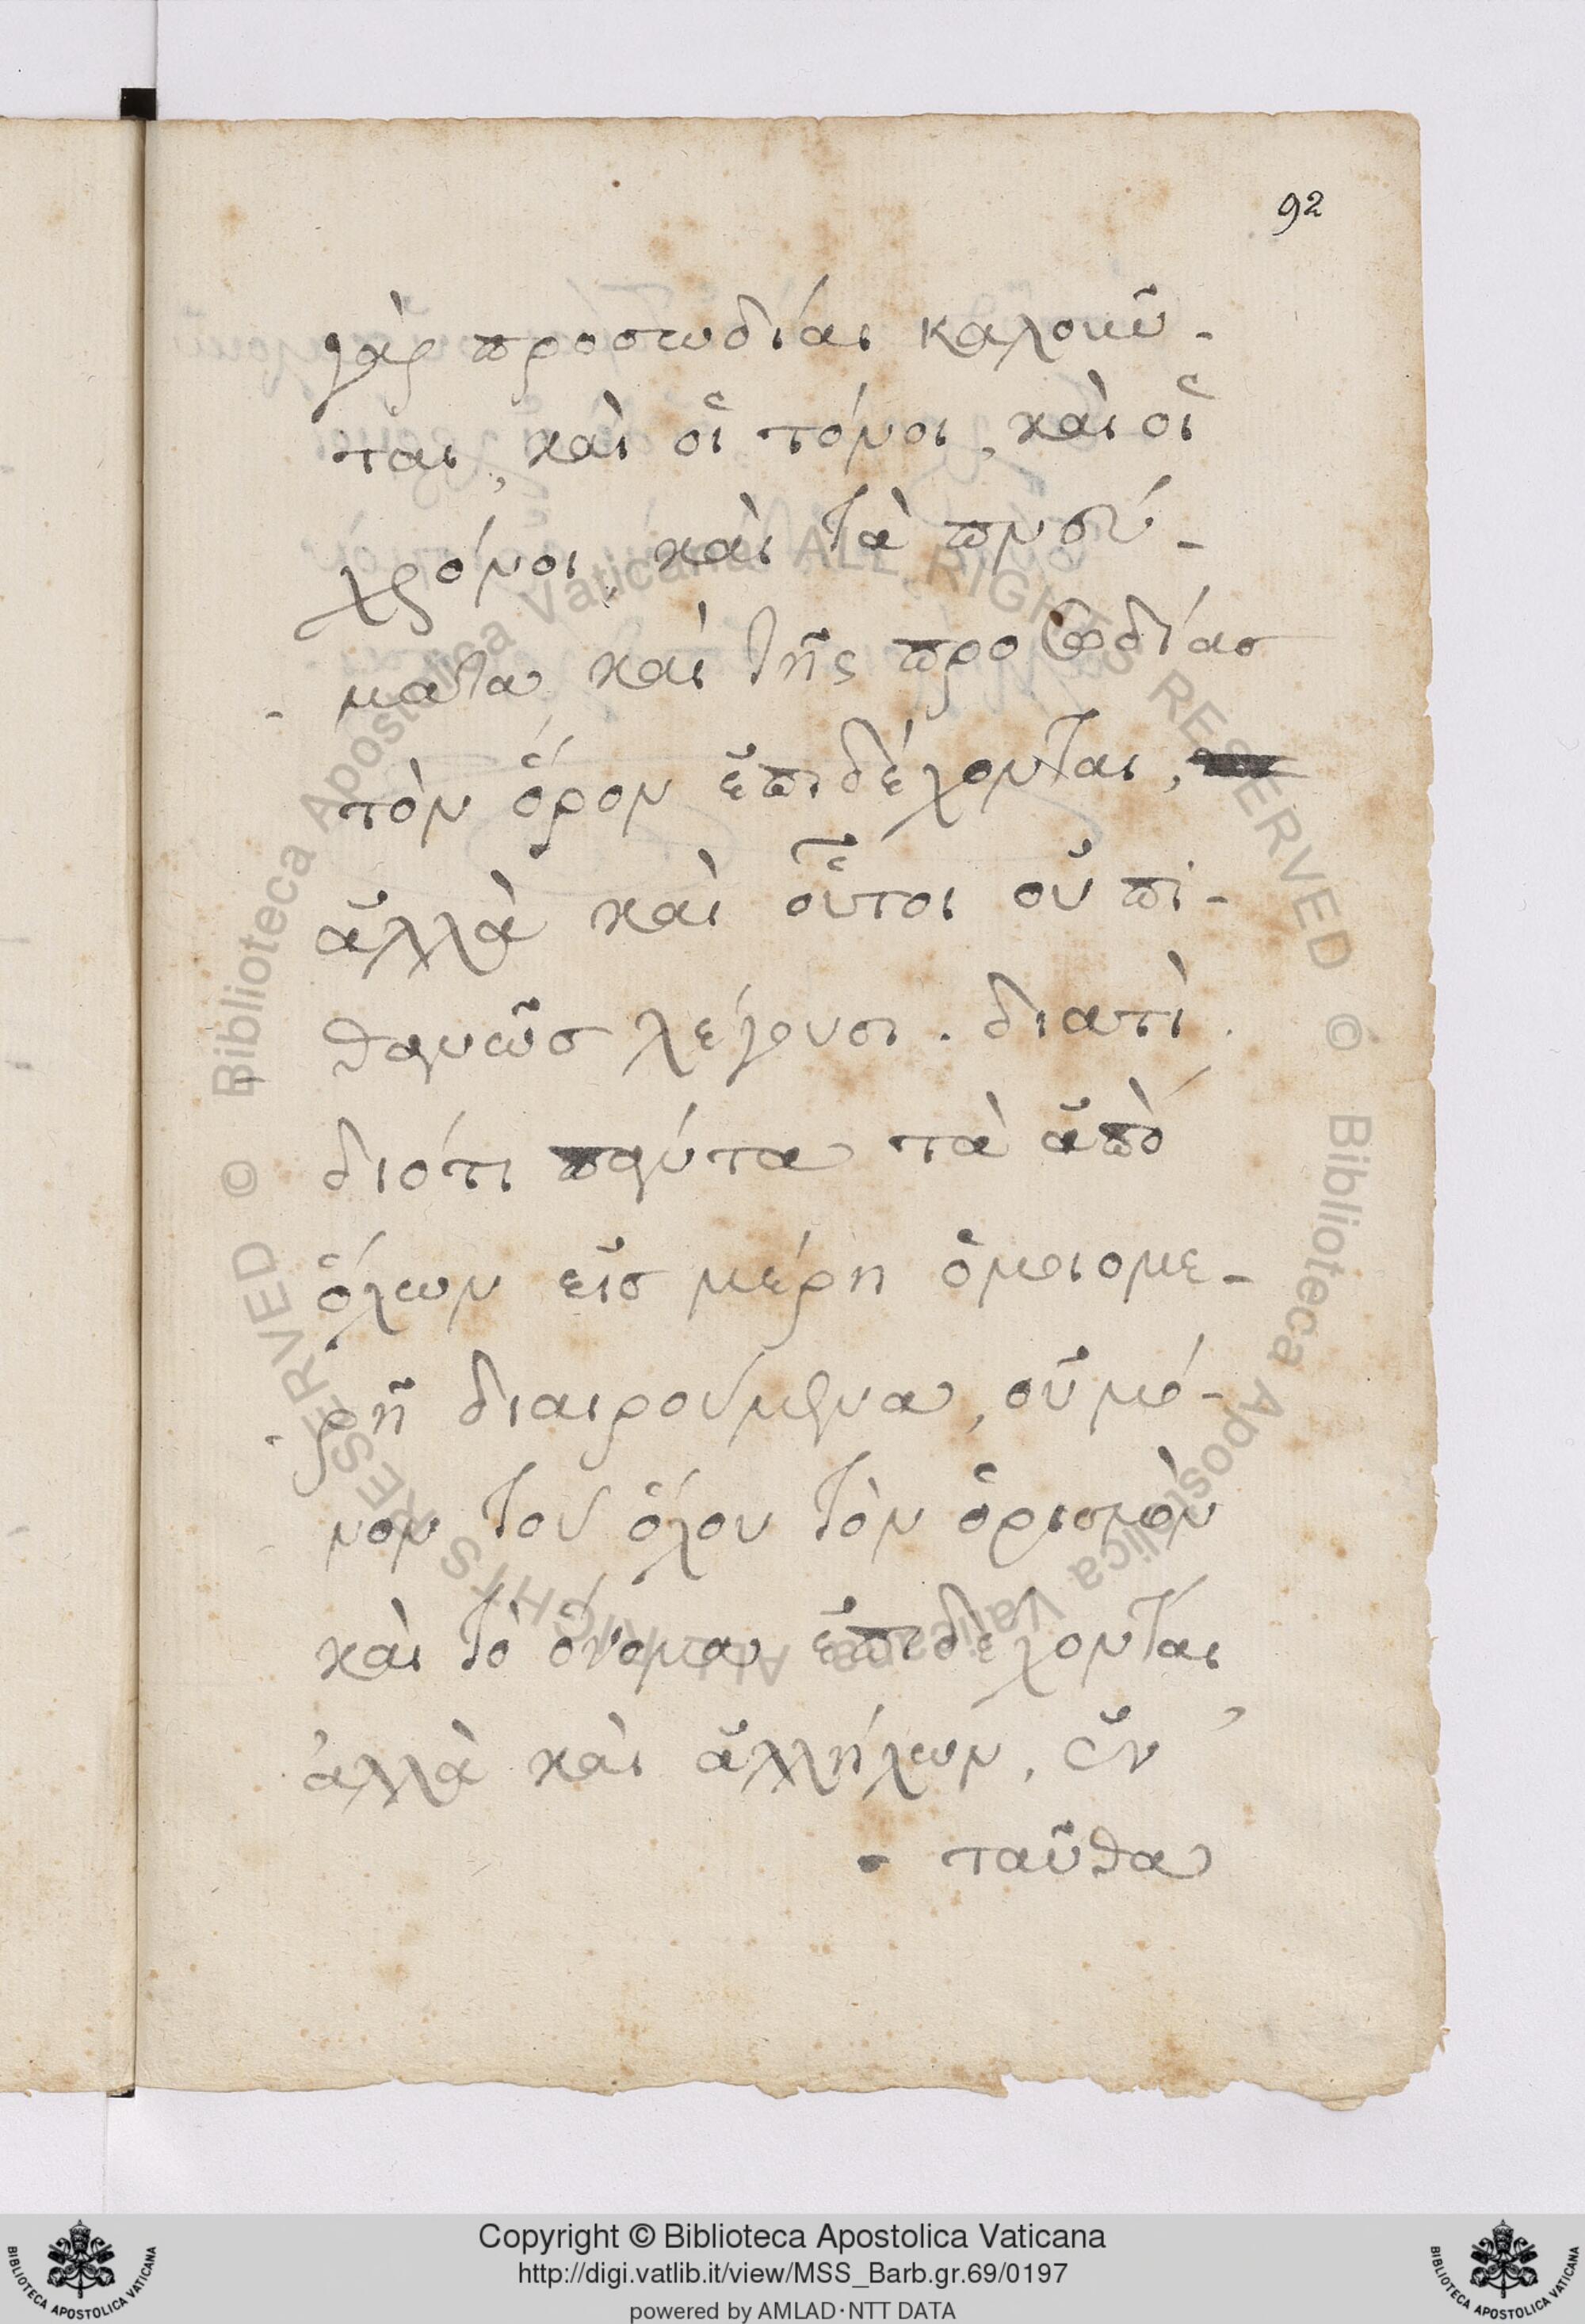 92
γὰρ προσωδίαι καλοῦν-
ται, καὶ οἱ τόνοι, καὶ οἱ
χρόνοι, καὶ τὰ πνεύ-
ματα καὶ τῆς προσωδίας
τὸν ὅρον ἐπιδέχονται,
ἀλλὰ καὶ οὗτοι οὐ πι-
θανῶς λέγουσι. διατὶ.
διότι πάντα τὰ ἀπὸ
ὅλων εἰς μέρη ὁμοιομε-
ρῆ διαιρούμενα, οὐ μό-
νον τοῦ ὅλου τὸν ὁρισμὸν
καὶ τὸ ὄνομα ἐπιδέχονται
ἀλλὰ καὶ ἀλλήλων, ἐν
- ταῦθα
© Biblioteca Apostolica Vaticana ALL RIGHTS RESERVED © Biblioteca Apostolica Vaticana ALL RIGHTS RESERVED
Copyright © Biblioteca Apostolica Vaticana
http://digi.vatlib.it/view/MSS_Barb.gr.69/0197
powered by AMLAD·NTT DATA
BIBLIOTECA APOSTOLICA VATICANA
BIBLIOTECA APOSTOLICA VATICANA